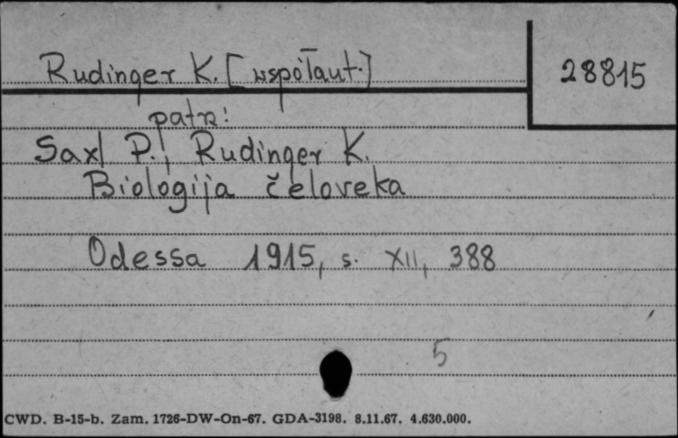 Rudinger K. [współaut.]
28815
patrz:
Saxl P., Rudinger K.
Biologija čeloveka
Odessa 1915, s. XII, 388
5
CWD. B-15-b. Zam. 1726-DW-On-67. GDA-3198. 8.11.67. 4.630.000.